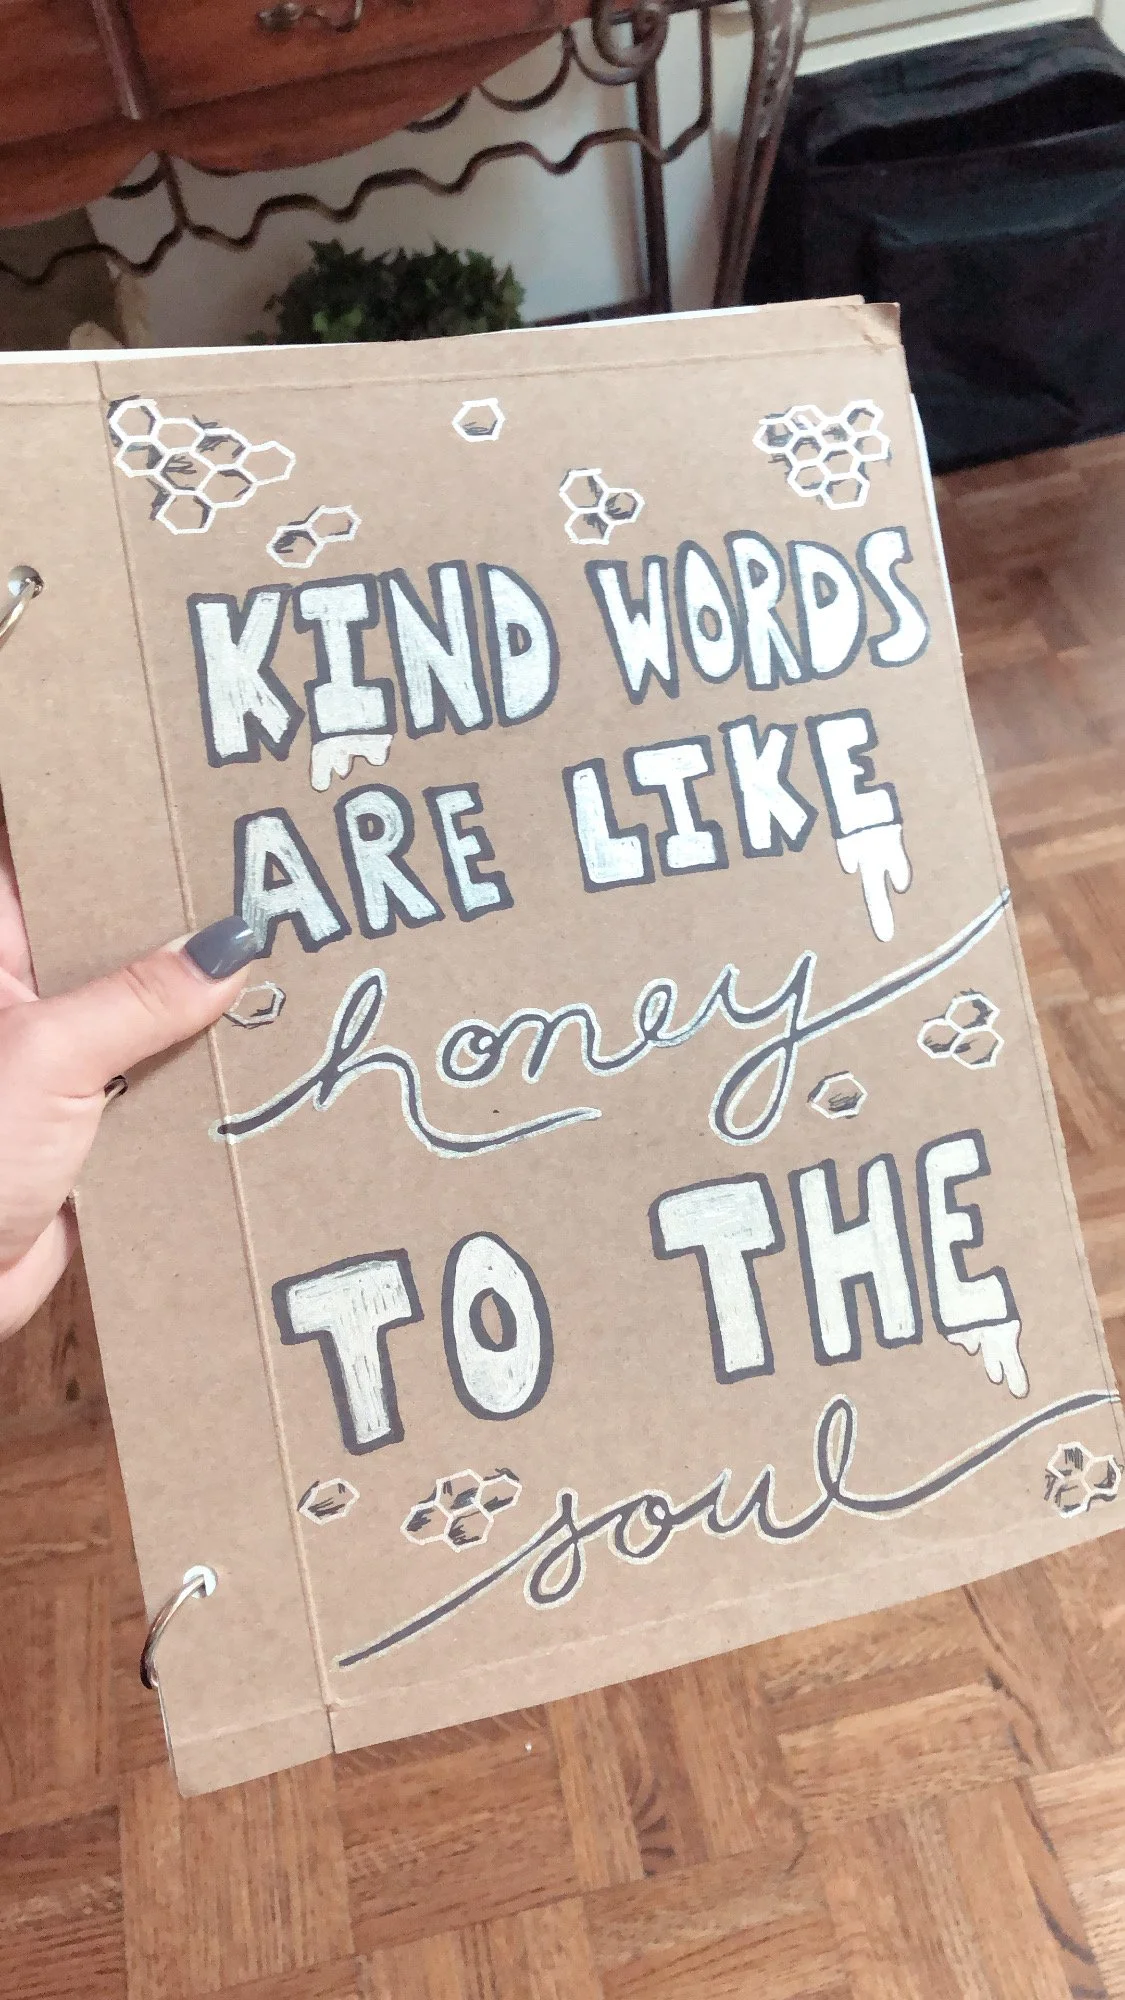 KIND WORDS
ARE LIKE
honey
TO THE
soul